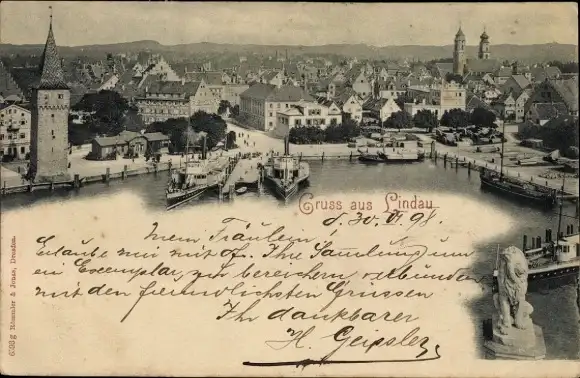 Gruss aus Lindau.
d. 30. VI 98.
Mein Fräulein!
Erlaube mir mit gf. Ihre Samlung um
ein Exemplar, zu bereichern verbunden
mit den freundlichsten Grüssen
Ihr dankbarer
H. Geipsler
6098g Römmler & Jonas, Dresden.